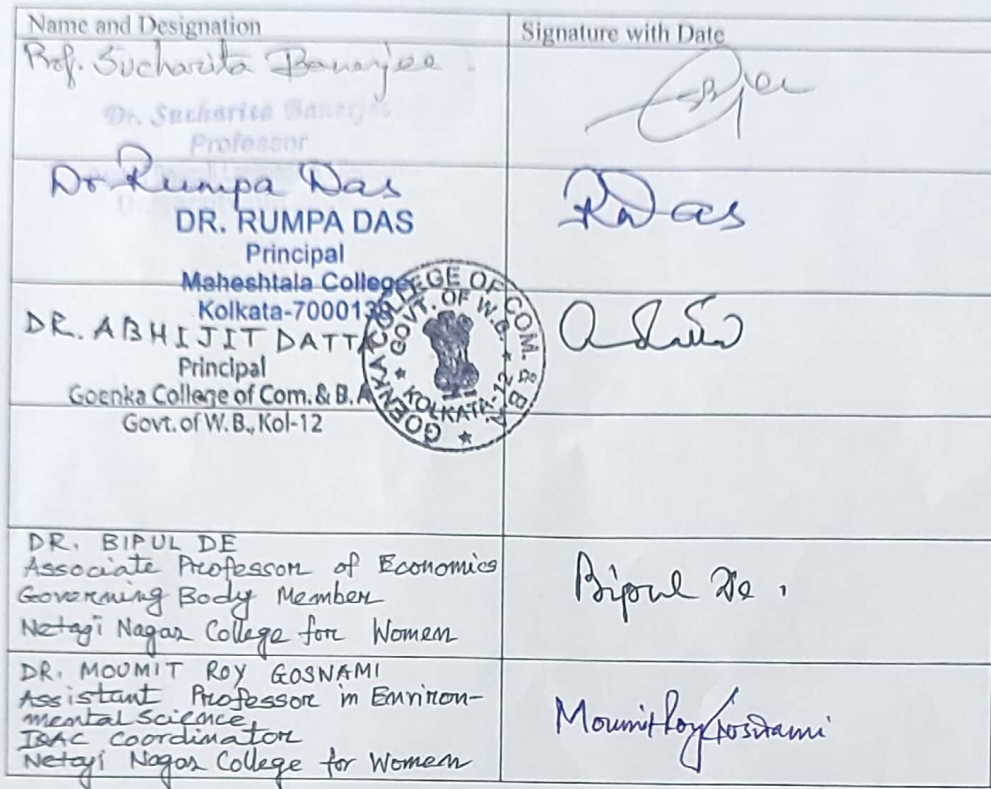 Name and Designation
Signature with Date
Prof. Sucharita Banerjee.
Dr. Sucharita Banerjee
Professor
Dr Rumpa Das
RDas
DR. RUMPA DAS
Principal
Maheshtala College
Kolkata-700013
DR. ABHIJIT DATTA
Principal
Goenka College of Com. & B. A
Govt. of W. B., Kol-12
GOENKA COLLEGE OF COM. & B.A.
GOVT. OF W.B. ★ KOLKATA-12 ★
DR. BIPUL DE
Associate Professor of Economics
Governing Body Member
Netagi Nagar College for Women
Bipul De.
DR. MOUMIT ROY GOSNAMI
Assistant Professor in Environ-
mental Science,
IQAC Coordinator
Netaji Nagar College for Women
Moumit Roy Goswami